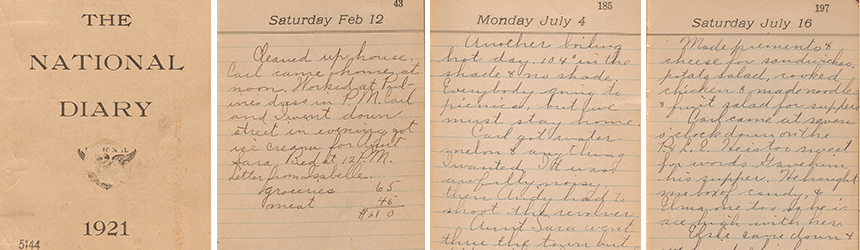 THE
NATIONAL
DIARY
1921
5144
43
Saturday Feb 12
Cleaned up house.
Carl came home at
noon. Worked at
dress in P.M. Carl
and I went down
street in evening got
ice cream for Aunt
Sara. Bed at 12 P.M.
Letter from Isabelle.
groceries 65
meat 45
185
Monday July 4
Another boiling
hot day. 104° in the
shade & no shade.
Everybody going to
picnics, but we
must stay home.
Carl got water-
melon & anything
I wanted. It was
awfully noisy
then Andy had to
shoot the revolver.
Aunt Sara went
thru the town but
197
Saturday July 16
Made pimento &
cheese for sandwiches,
potato salad, cooked
chicken & made noodles
& fruit salad for supper.
Carl came at seven
o'clock down on the
P. & L. E. He is too sweet
for words. Gave him
his supper. He brought
me box of candy, &
Elma one too. She is
with her.
Elsie came down &